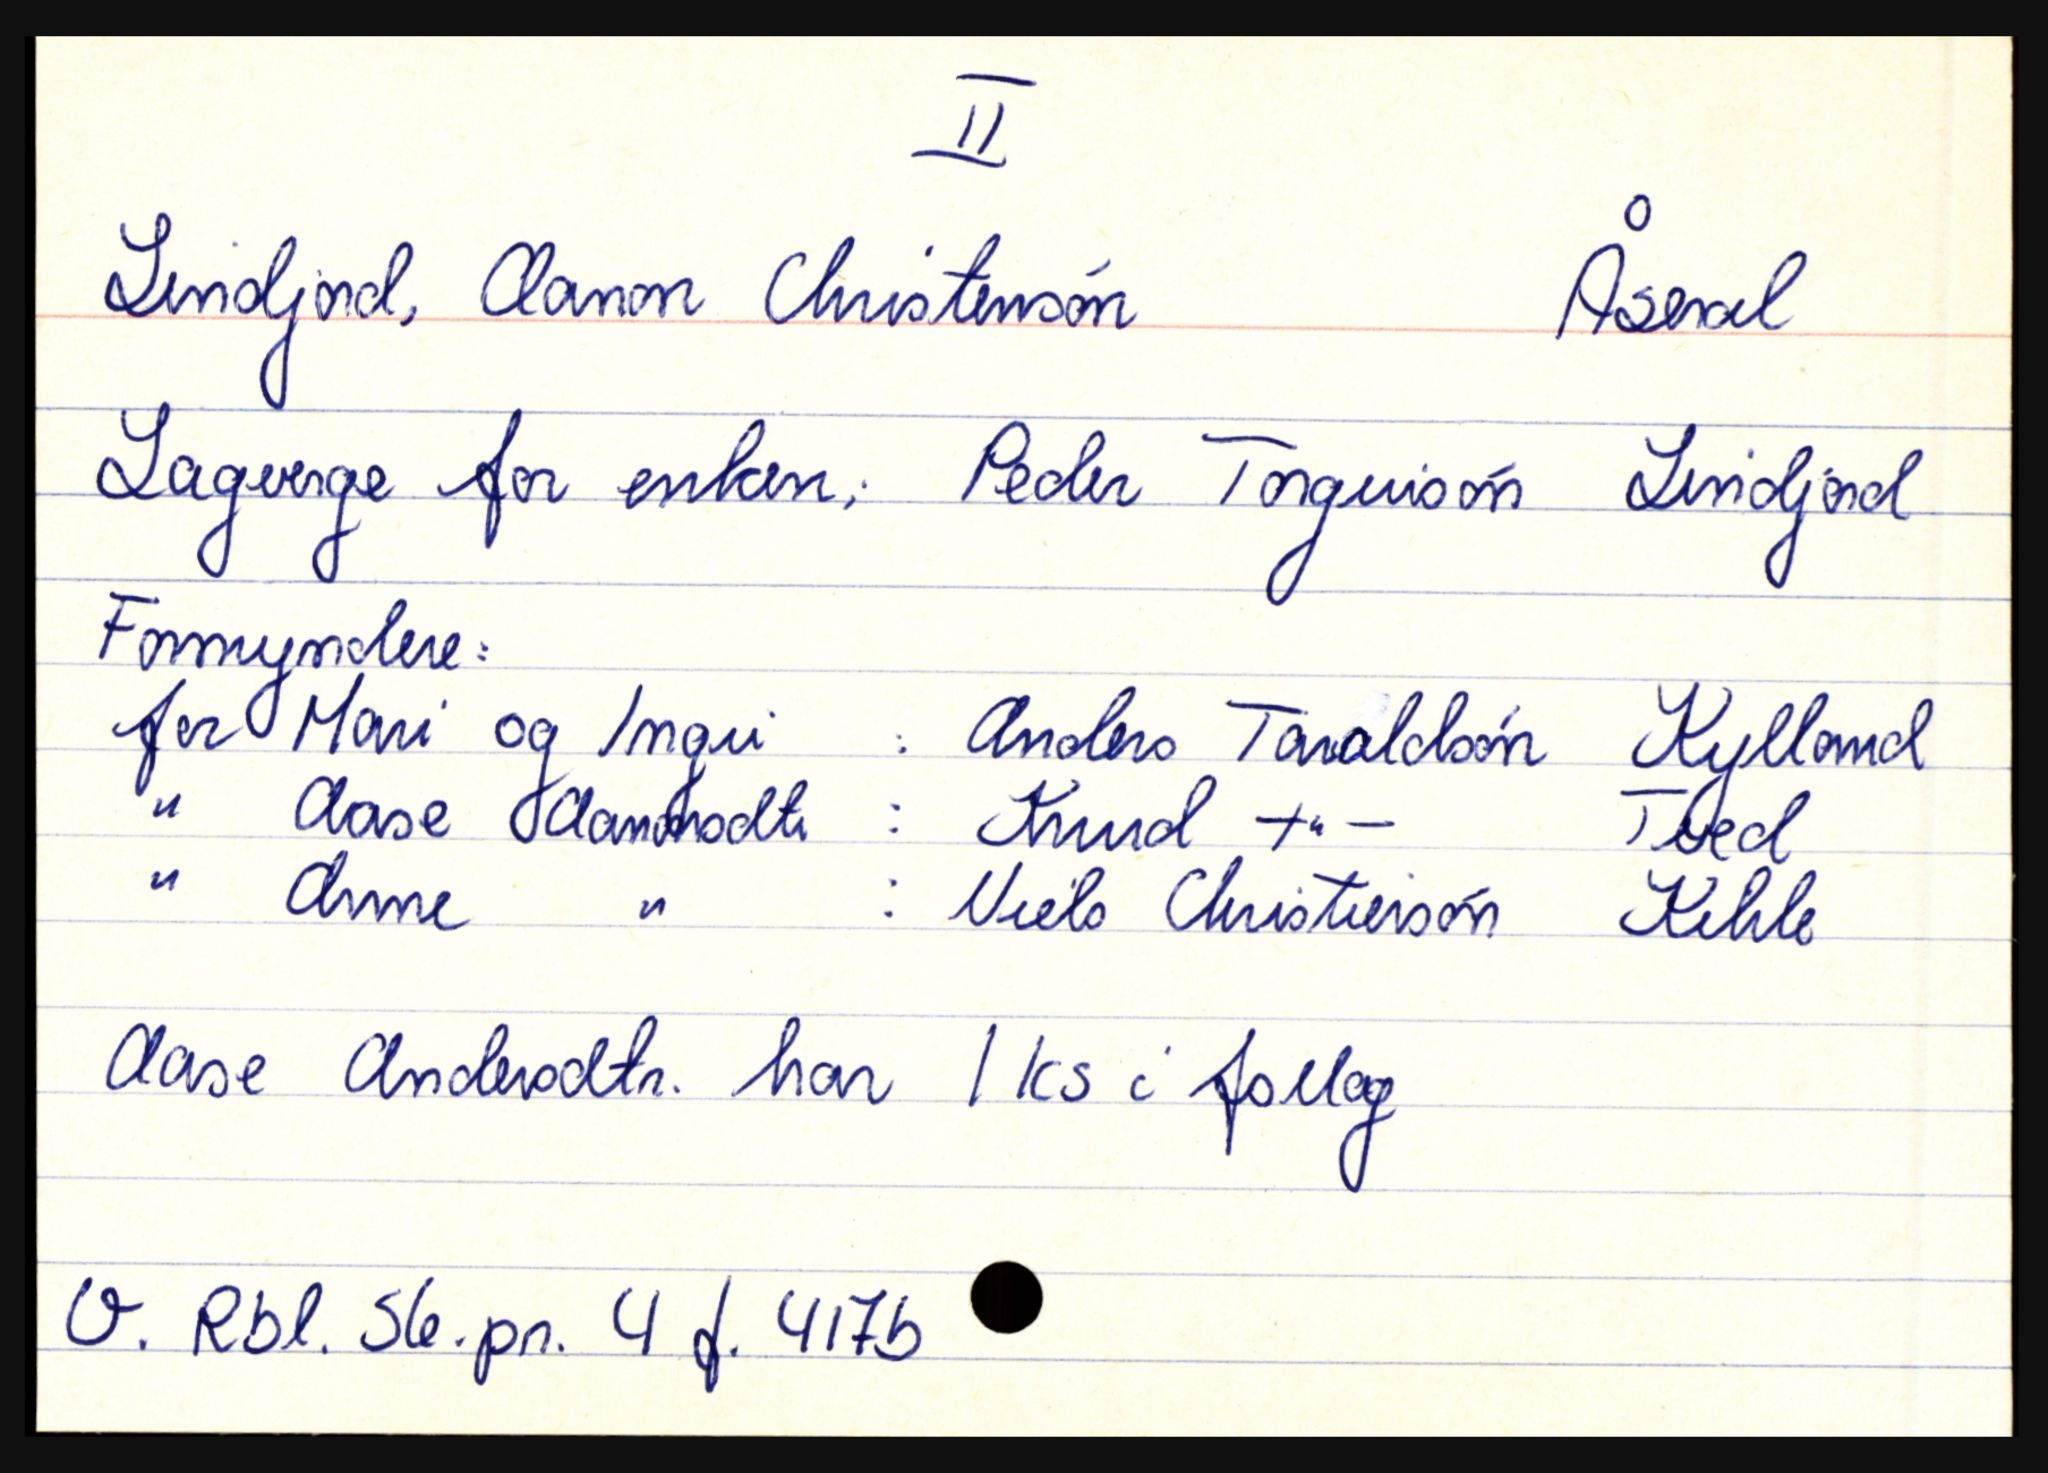 II
Lindjord, Aanon Christensøn Åseral
Lagverge for enken: Peder Torguisøn Lindjord
Formyndere:
for Mari og Ingri : Anders Taraldsøn Kylland
" Aase Aanonsdtr : Knud -"- Tved
" Anne " : Niels Christiersøn Kehle
Aase Andersdtr. har 1 ks i follag
V. Rbl. Sk.pr. 4 f. 417b